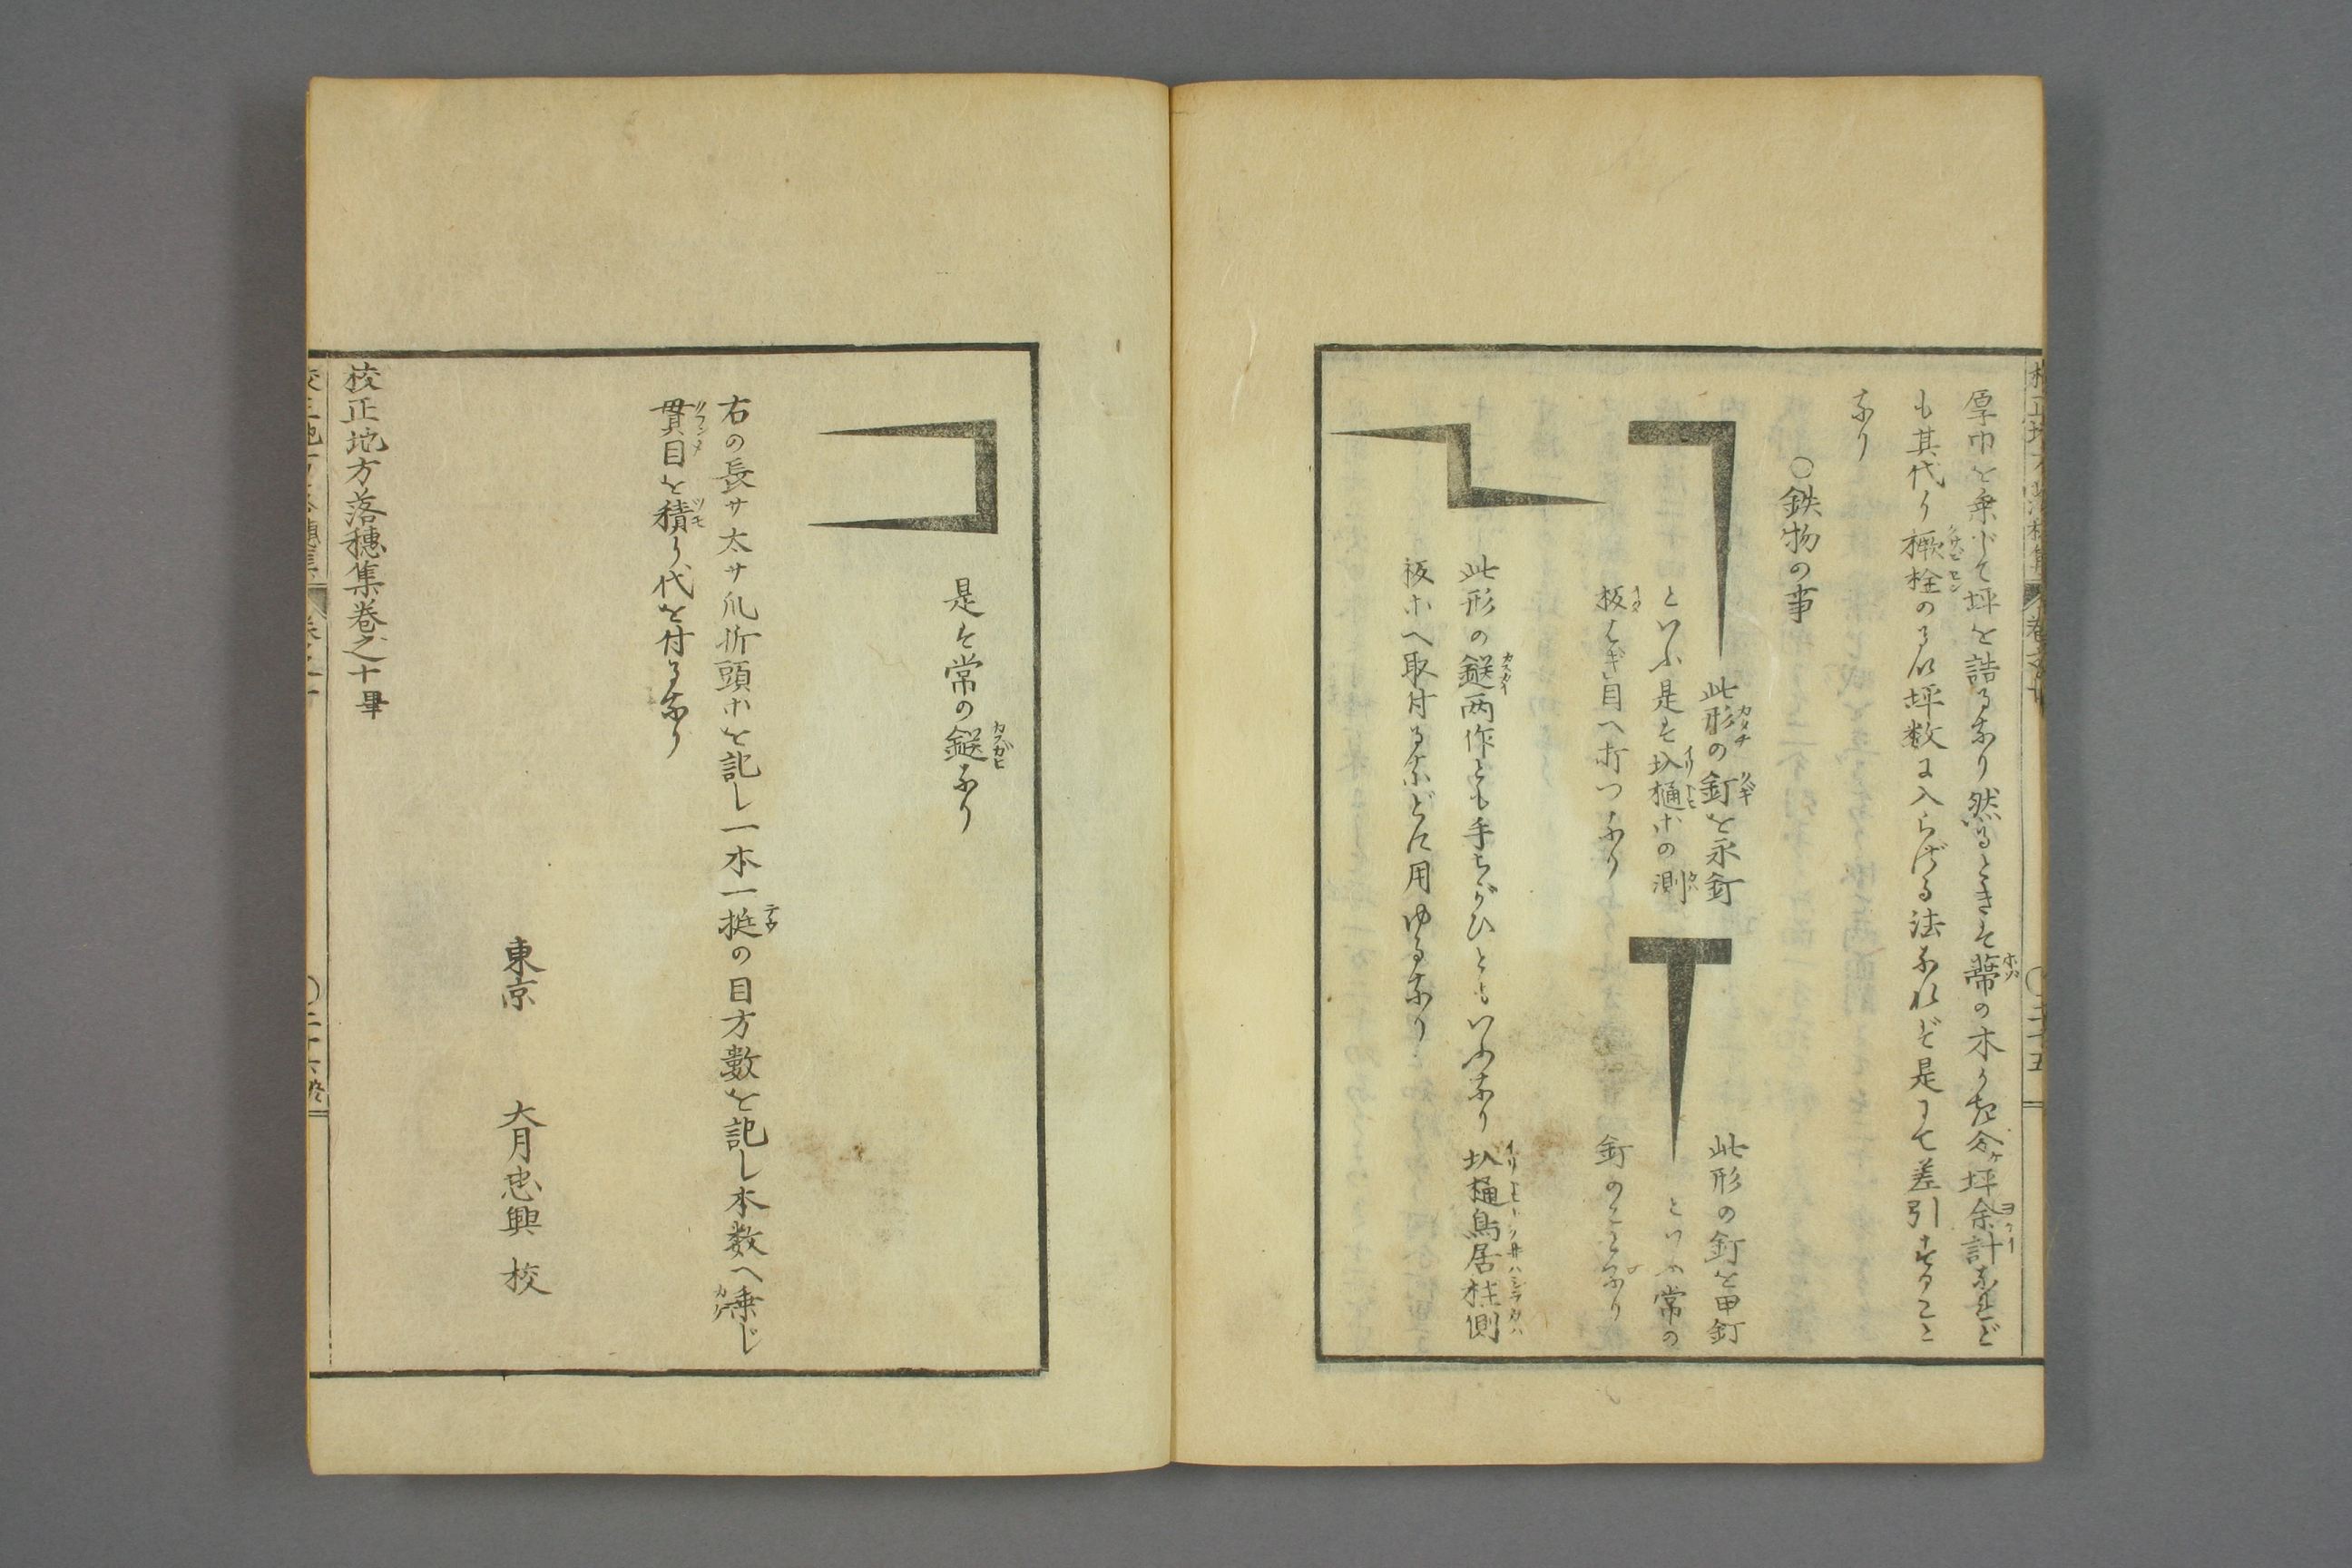 厚巾を乗じて坪を詰るなり然るときは蔕の木つき分ケ坪余計なれど
も其代り橛栓のるい坪数に入らざる法なれば是にて差引すること
なり
○鉄物の事
此形の釘を永釘
といふ是は圦樋ホの測
板はぎ目へ打つなり
此形の釘を甲釘
といふ常の
釘のことなり
此形の鎹両作とも手ちがひともいふなり圦樋鳥居柱側
板ホへ取付るなどに用ゆるなり
是は常の鎹なり
右の長サ太サ爪折頭ホを記し一本一挺の目方數を記し本数へ乗じ
貫目を積り代を付るなり
東京 大月忠興 校
校正地方落穗集巻之十畢